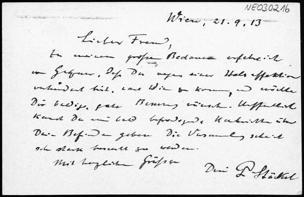 NE030216
Wien, 21.9.13
Lieber Freund,
Zu meinem großen Bedauern erfahre ich
von Gutzmer, daß Du wegen einer Halsaffektion
verhindert bist, nach Wien zu kommen, und möchte
Dir baldige, gute Besserung wünschen. Hoffentlich
kannst Du mir bald befriedigende Nachricht über
Dein Befinden geben. Die Versammlung scheint
sehr stark besucht zu werden.
Mit herzlichen Grüßen
Dein P. Stäckel